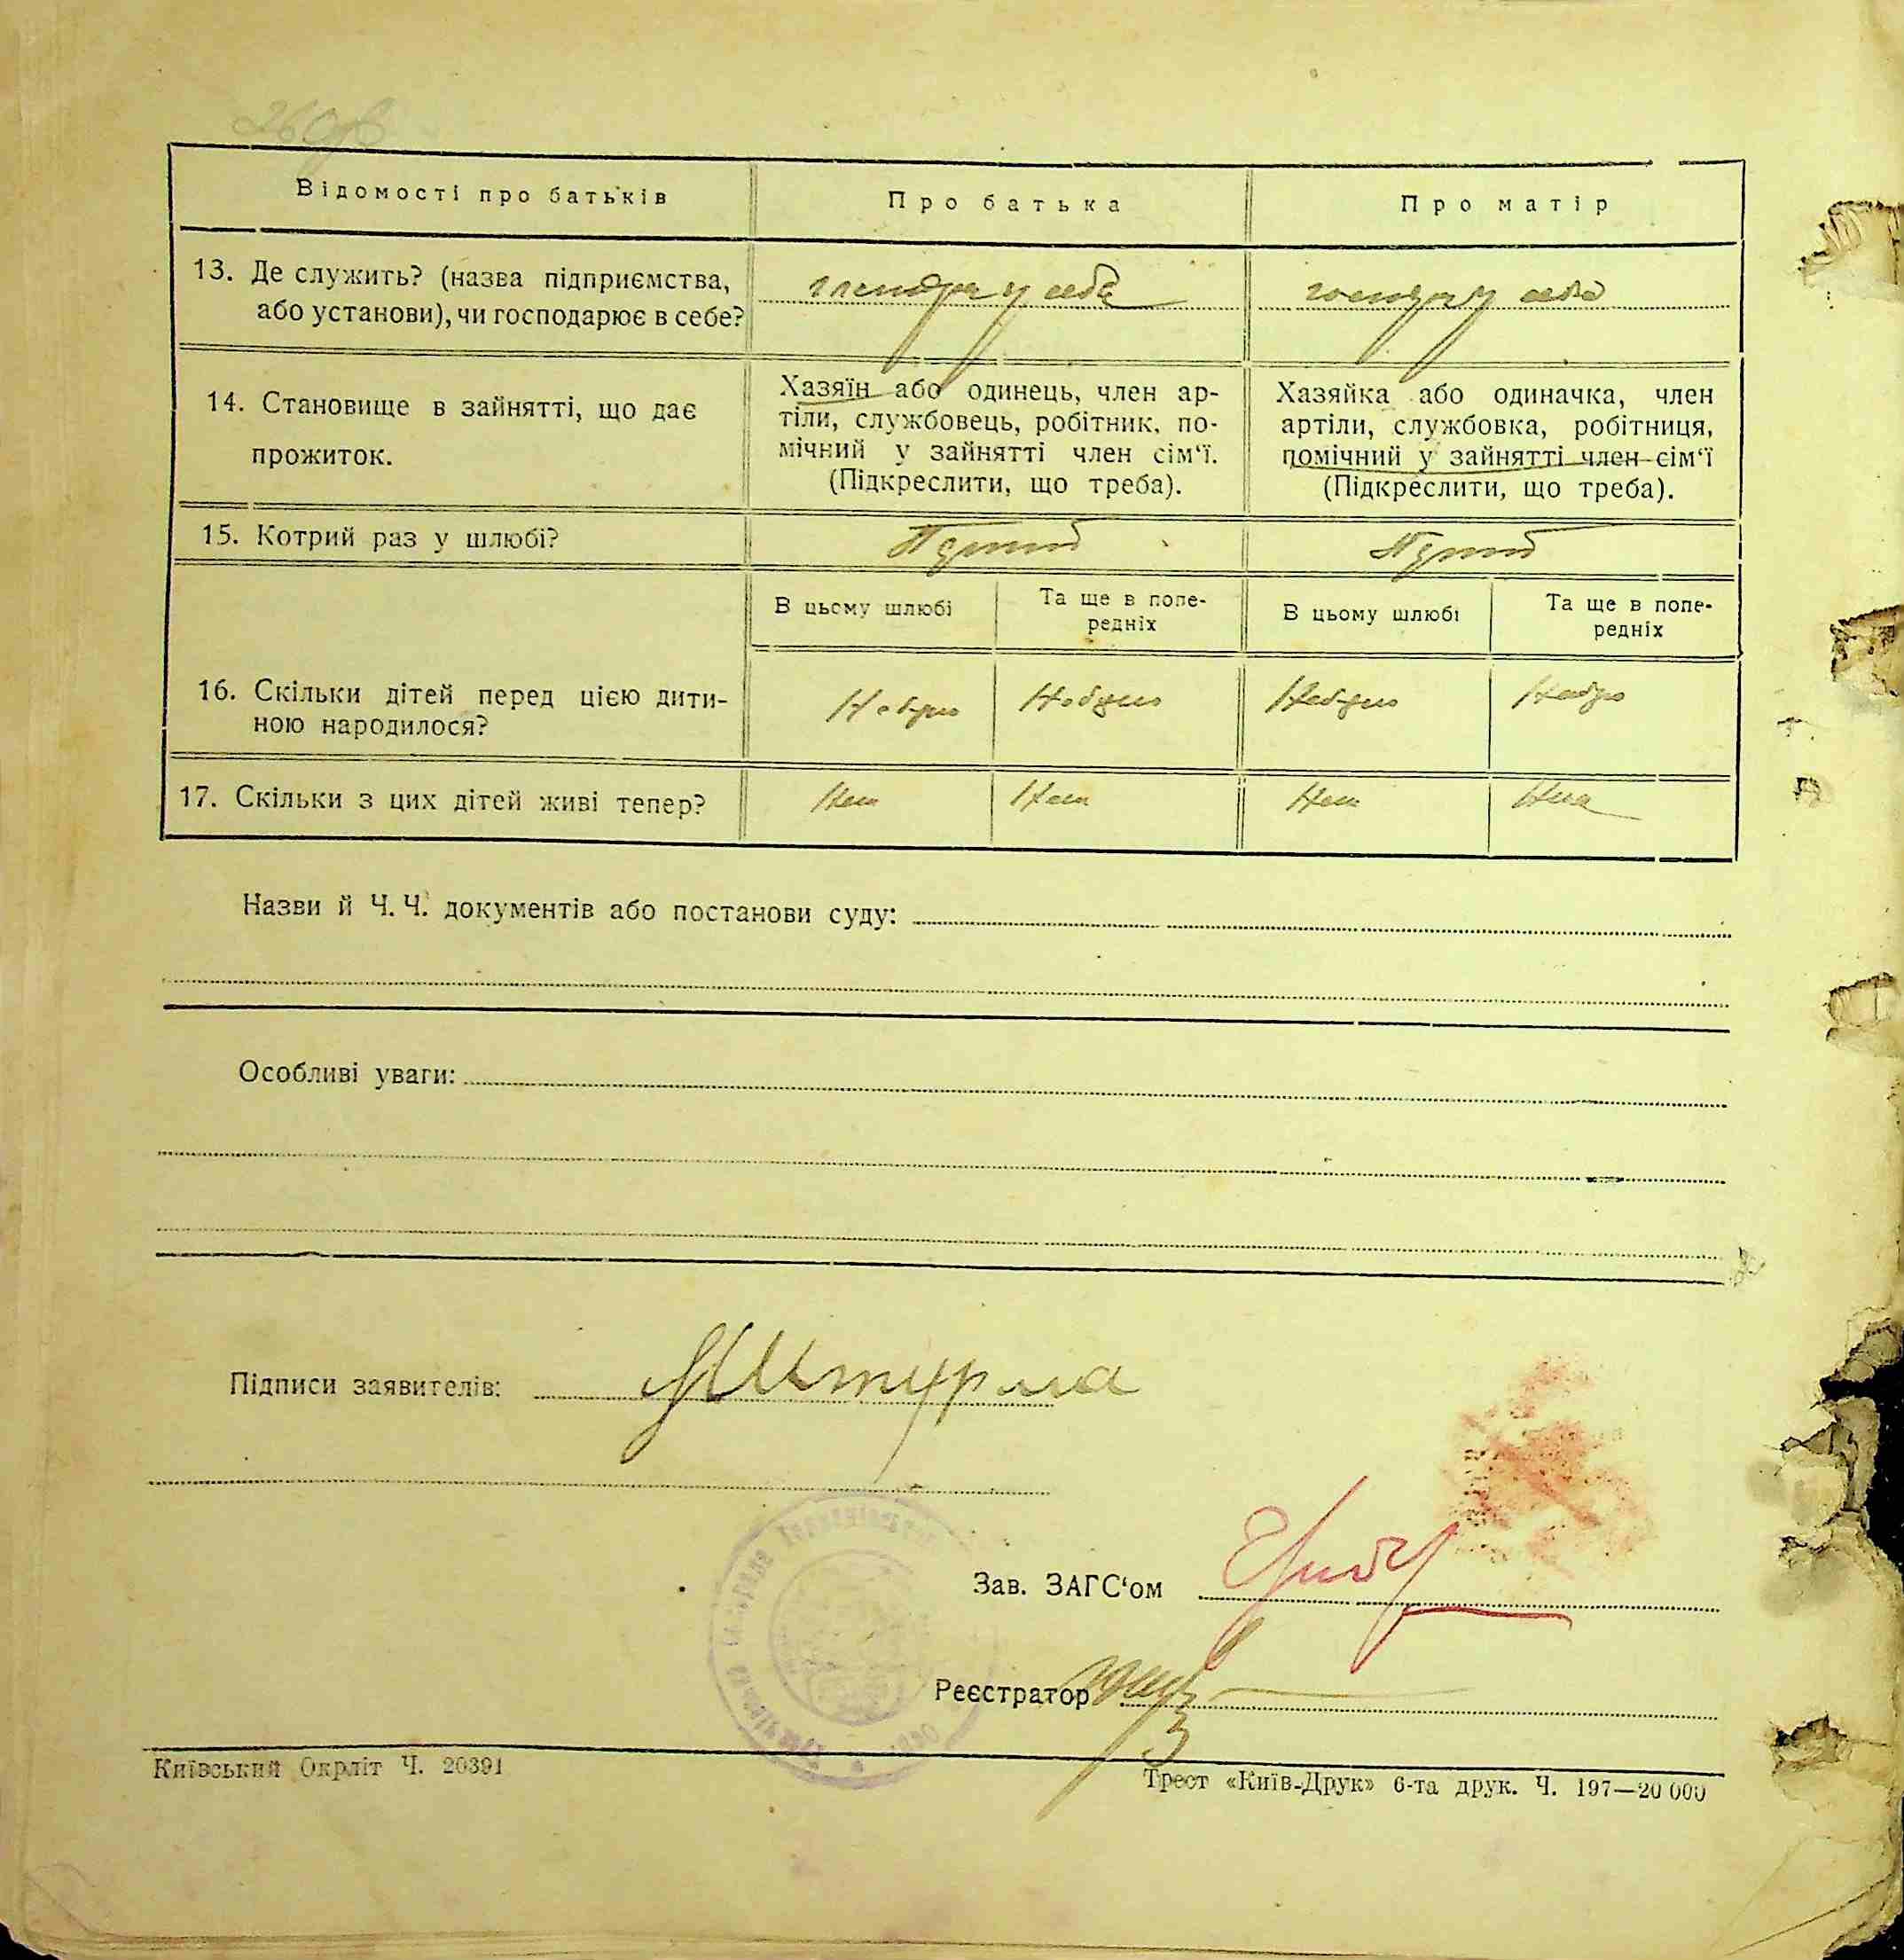 Відомості про батьків
Про батька
Про матір
13. Де служить? (назва підприємства,
або установи), чи господарює в себе?
у себе
у себе
14. Становище в зайнятті, що дає
прожиток.
Хазяїн або одинець, член ар-
тіли, службовець, робітник, по-
мічний у зайнятті член сім'ї.
(Підкреслити, що треба).
Хазяйка або одиначка, член
артіли, службовка, робітниця,
помічний у зайнятті член сім'ї
(Підкреслити, що треба).
15. Котрий раз у шлюбі?
В цьому шлюбі
Та ще в попе-
редніх
В цьому шлюбі
Та ще в попе-
редніх
16. Скільки дітей перед цією дити-
ною народилося?
17. Скільки з цих дітей живі тепер?
Назви й Ч. Ч. документів або постанови суду:
Особливі уваги:
Підписи заявителів:
Зав. ЗАГС'ом
Реєстратор
Київський Окрліт Ч. 20391
Трест «Київ-Друк» 6-та друк. Ч. 197—20 000